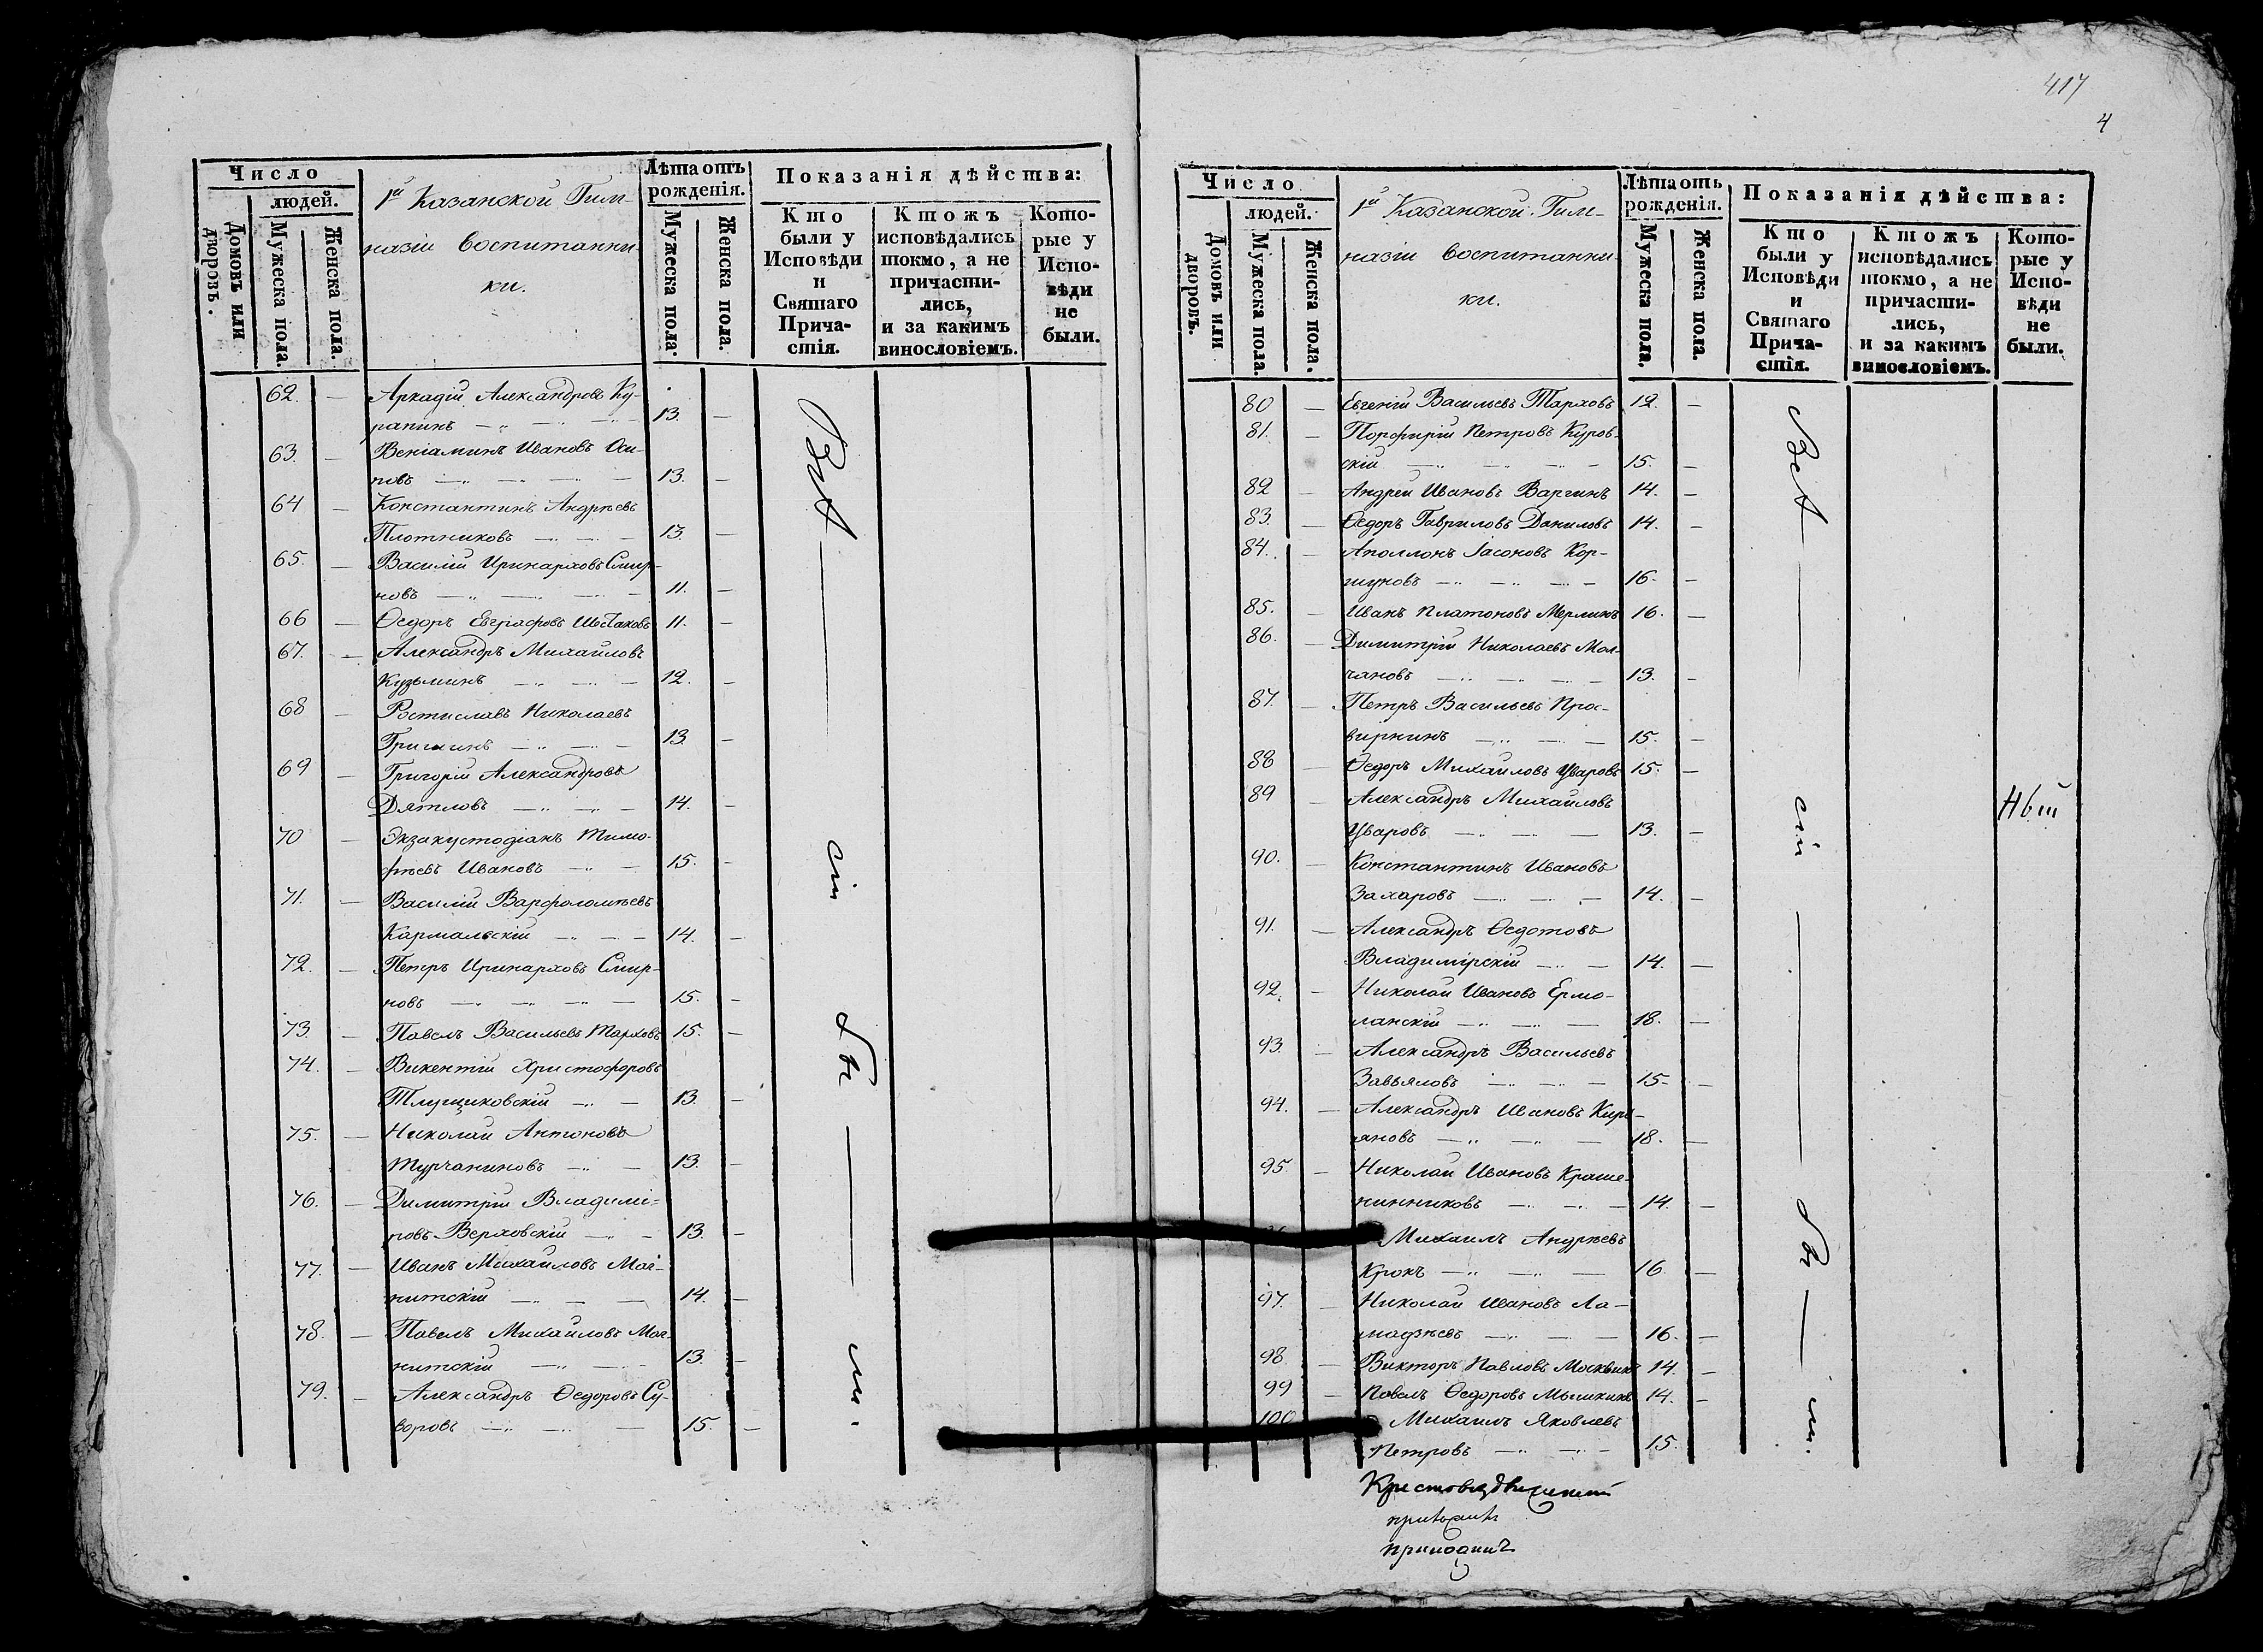 Число
людей.
Домовъ или дворовъ.
Мужеска пола.
Женска пола.
1й Казанской Гим-
назіи воспитанни-
ки.
Лѣта отъ
рожденія.
Мужеска пола.
Женска пола.
Показанія дѣйства:
Кто были у Исповѣди и Святаго Прича-стія.
Ктожъ исповѣдались токмо, а не причасти-лись, и за какимъ винословіемъ.
Кото-рые у Испо-вѣди не были.
62. — Аркадій Александровъ Ку-
рапинъ — 13. —
63. — Веніаминъ Ивановъ Оси-
повъ — 13. —
64 — Константинъ Андреевъ
Плотниковъ — 13. —
65. — Василій Иринарховъ Смир-
новъ — 11. —
66 — Ѳедоръ Евграфовъ 11. —
67. — Александръ Михайловъ
Кузьминъ — 12. —
68 — Ростиславъ Николаевъ
Гришинъ — 13. —
69 — Григорій Александровъ
Дятловъ — 14. —
70 — Экзакустодіанъ Тимо-
фѣевъ Ивановъ — 15. —
71. — Василій Варфоломѣевъ
Кармальскій — 14. —
72. — Петръ Иринарховъ Смир-
новъ — 15. —
73. — Павелъ Васильевъ Тарховъ 15. —
74. — Викентій Христофоровъ
13. —
75. — Николай Антоновъ
Турчаниновъ — 13. —
76. — Димитрій Владимі-
ровъ Верховскій — 13. —
77. — Иванъ Михайловъ Маг-
нитскій — 14. —
78. — Павелъ Михайловъ Маг-
нитскій — 13. —
79. — Александръ Ѳедоровъ Су-
воровъ — 15. —
417
4
Число
людей.
Домовъ или дворовъ.
Мужеска пола.
Женска пола.
1й Казанской Гим-
назіи воспитанни-
ки.
Лѣта отъ
рожденія.
Мужеска пола.
Женска пола.
Показанія дѣйства:
Кто были у Исповѣди и Святаго Прича-стія.
Ктожъ исповѣдались токмо, а не причасти-лись, и за какимъ винословіемъ.
Кото-рые у Испо-вѣди не были.
80 — Евгеній Васильевъ Тарховъ 12. —
81. — Порфирій Петровъ Куров-
скій — 15. —
82 — Андрей Ивановъ Варгинъ 14. —
83. — Ѳедоръ Гавриловъ Даниловъ 14. —
84. — Аполлонъ Іасоновъ Кор-
шуновъ — 16. —
85. — Иванъ Платоновъ Мерлинъ 16. —
86. — Димитрій Николаевъ Мол-
чановъ — 13. —
87. — Петръ Васильевъ Прос-
вирнинъ — 15. —
88 — Ѳедоръ Михайловъ Уваровъ 15. —
89 — Александръ Михайловъ
Уваровъ — 13. —
90. — Константинъ Ивановъ
Захаровъ — 14. —
91. — Александръ Ѳедотовъ
Владимірскій — 14. —
92. — Николай Ивановъ Ермо-
ланскій — 18. —
93. — Александръ Васильевъ
Завьяловъ — 15. —
94. — Александръ Ивановъ Кирь-
яновъ — 18. —
95. — Николай Ивановъ Краше-
нинниковъ — 14. —
Михаилъ Андреевъ
Крокъ — 16. —
97. — Николай Ивановъ Ла-
— 16. —
98 — Викторъ Павловъ Москвинъ 14. —
99 — Павелъ Ѳедоровъ Мышкинъ 14. —
100 Михаилъ Яковлевъ
Петровъ — 15.
Нѣт